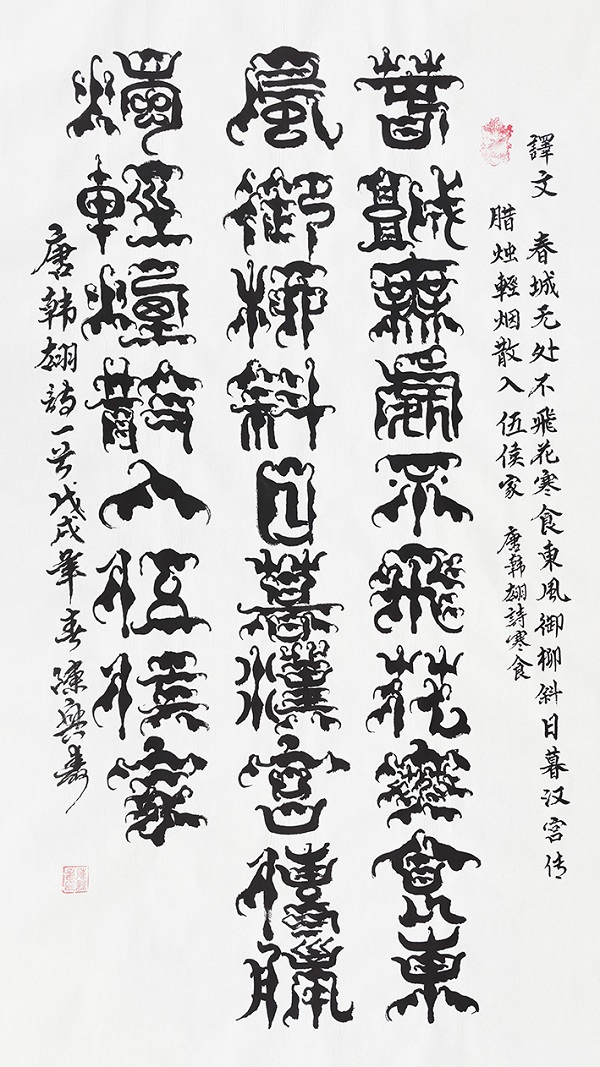 譯文 春城无处不飛花寒食東風御柳斜日暮汉宫传
腊烛輕烟散入伍侯家 唐韩翃詩寒食
春城無處不飛花寒食東
風御柳斜日暮漢宫傳臘
燭輕煙散入伍侯家
唐韩翃詩一首戊戌年春陳興壽